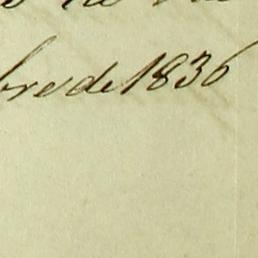 bre de 1836